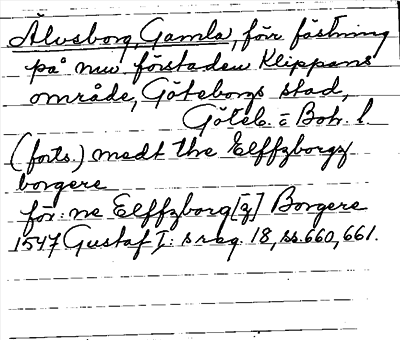 Älvsborg, Gamla, förr fästning
på nuv förstaden Klippans
område, Göteborgs stad,
Göteb. o Boh. l.
(forts.) medt the Elffzborgz
borgere
för: ne Elffzborg[z] Borgere
1547 Gustaf I: s reg. 18, ss. 660, 661.